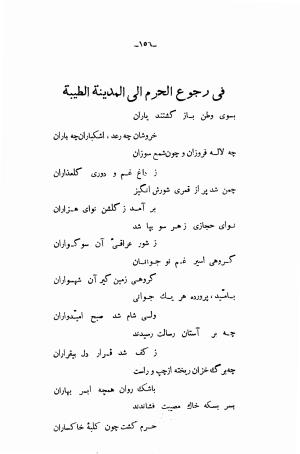 -١٥٦-
فی رجوع الحرم الی المدینة الطیبة
بسوی وطن بـاز گشتند یاران
خروشان چه رعد ، اشکباران چه باران
چه لالـه فروزان و چون شمع سوزان
ز داغ غـم و دوری گلعذاران
چمن شد پر از قمری شورش انگیز
بر آمـد ز گلشن نوای هـزاران
نـوای حجازی ز هـر سو بپا شد
ز شور عراقی آن سوگـواران
گـروهی اسیر غـم نو جـوانـان
گروهـی زمین گیر آن شهسواران
بـامّید ، پرورده هر یـك جـوانی
ولـی شام شد صبح امیّدواران
چـه بر آستان رسالت رسیدند
ز کف شد قـرار دل بیقراران
چه برگ خزان ریخته از چپ و راست
باشك روان همچه ابـر بهاران
بسر بسکه خاك مصیبت فشاندند
حـرم گشت چون کلبۀ خاکساران